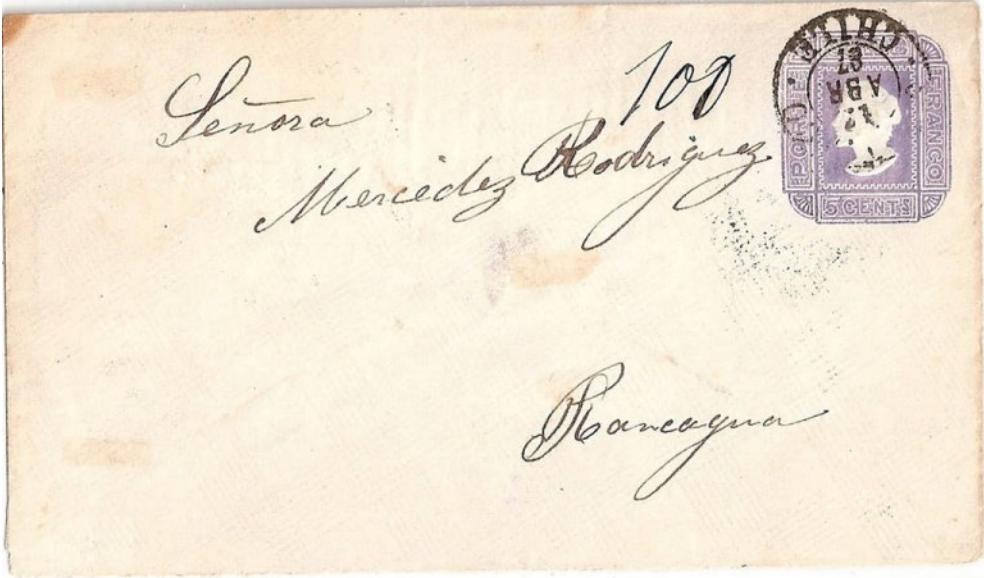 Señora
100
Mercedez Rodriguez
Rancagua
PORTE FRANCO
5 CENTS
CHILE
ABR
87